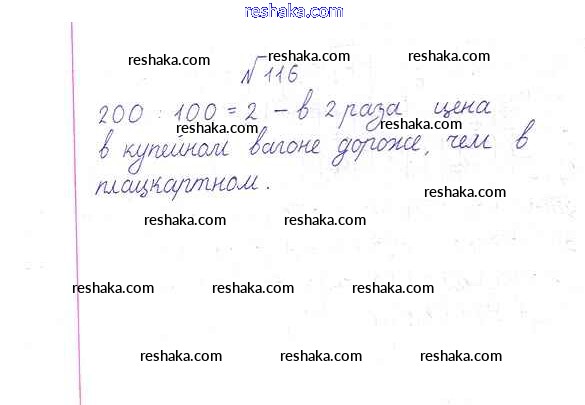 www.reshaka.com
reshaka.com reshaka.com reshaka.com
№116
200 : 100 = 2 - в 2 раза цена
reshaka.com reshaka.com
в купейном вагоне дороже, чем в
плацкартном.
reshaka.com
reshaka.com reshaka.com
reshaka.com reshaka.com reshaka.com
reshaka.com reshaka.com reshaka.com